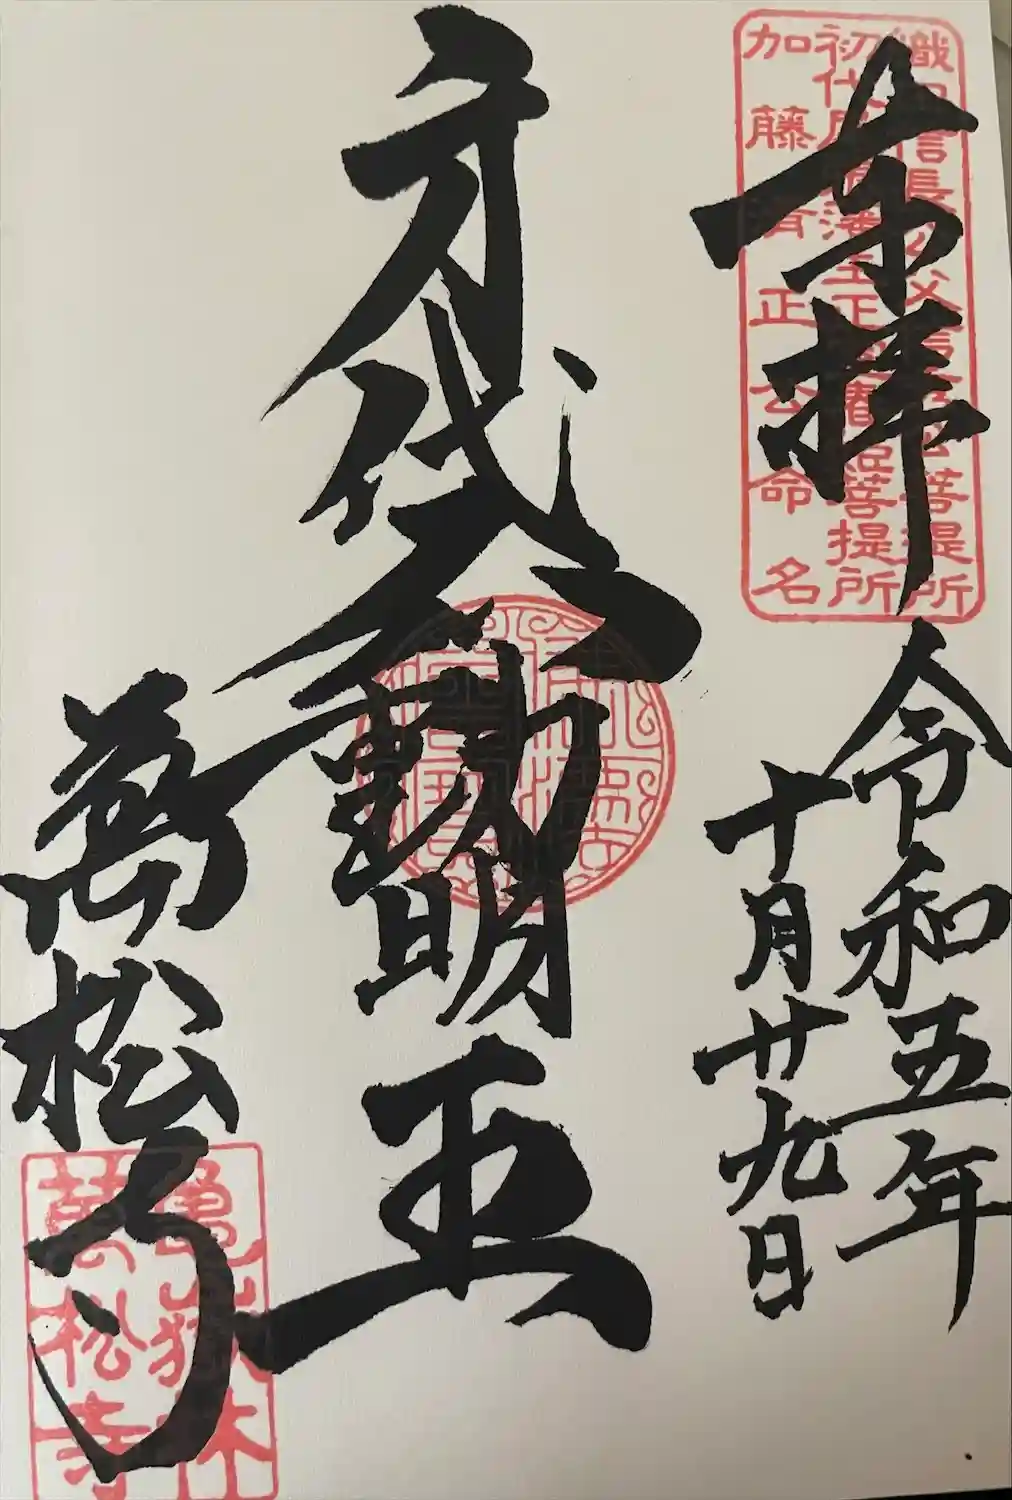 奉拝
令和五年
十月廿九日
身代不動明王
萬松寺
織田信長公父信秀公菩提所
初代尾張藩主正室春姫菩提所
加藤清正公命名
亀嶽林
萬松寺